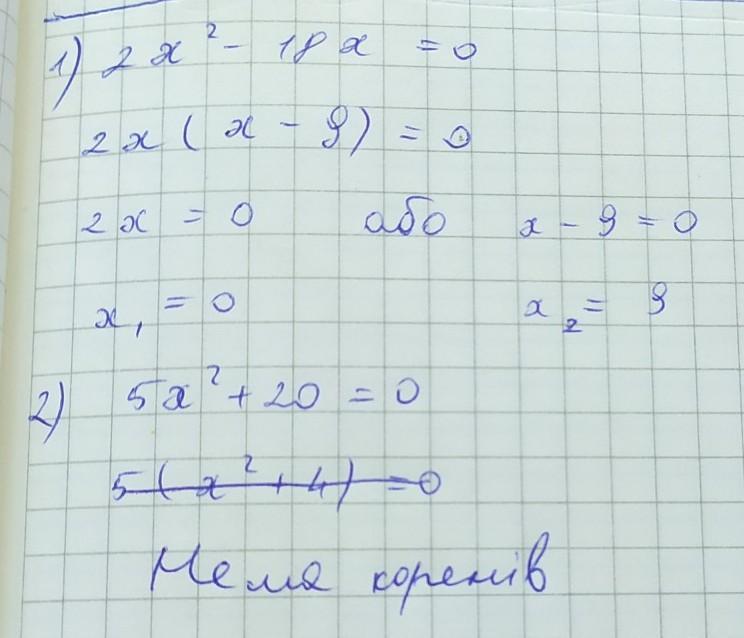 1) 2x² - 18x = 0
2x(x - 9) = 0
2x = 0 або x - 9 = 0
x₁ = 0 x₂ = 9
2) 5x² + 20 = 0
5(x² + 4) = 0
Нема коренів